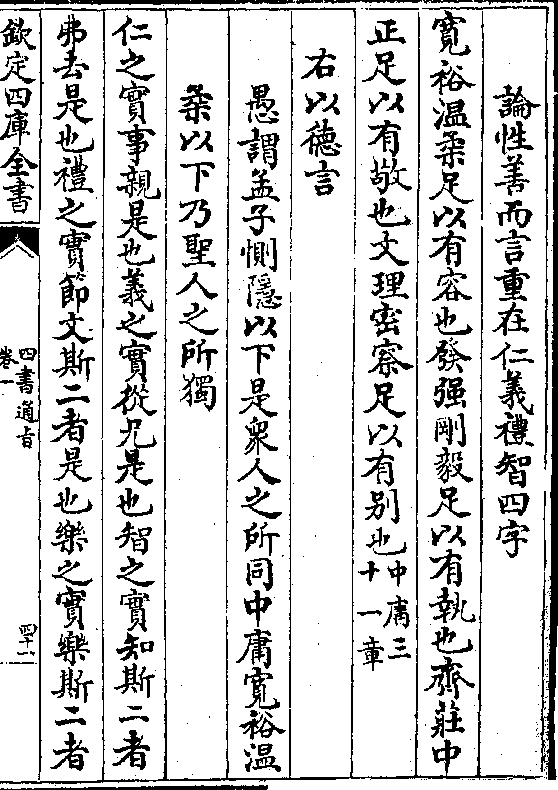 論性善而言重在仁義禮智四字
寛裕溫柔足以有容也發强剛毅足以有執也齊莊中
正足以有敬也文理密察足以有别也中庸三十一章
右以德言
愚謂孟子惻隱以下是衆人之所同中庸寛裕溫
柔以下乃聖人之所獨
仁之實事親是也義之實從兄是也智之實知斯二者
弗去是也禮之實節文斯二者是也樂之實樂斯二者
欽定四庫全書
四書通旨
卷一
四十一